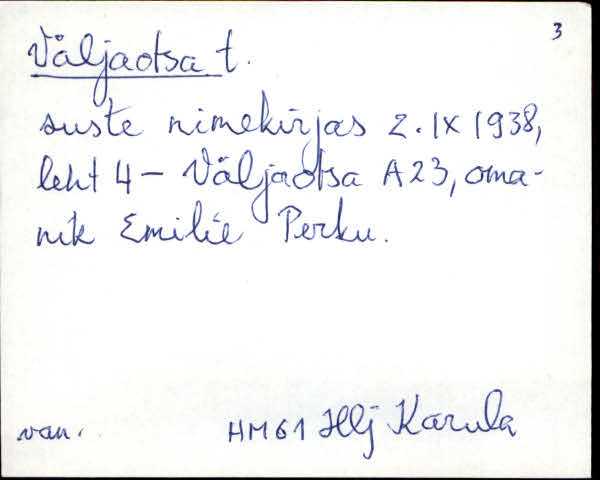 3
Väljaotsa t.
suste nimekirjas 2.IX 1938,
leht 4 - Väljaotsa A23, oma-
nik Emilie Perku.
van. HM61 Hlj Karula